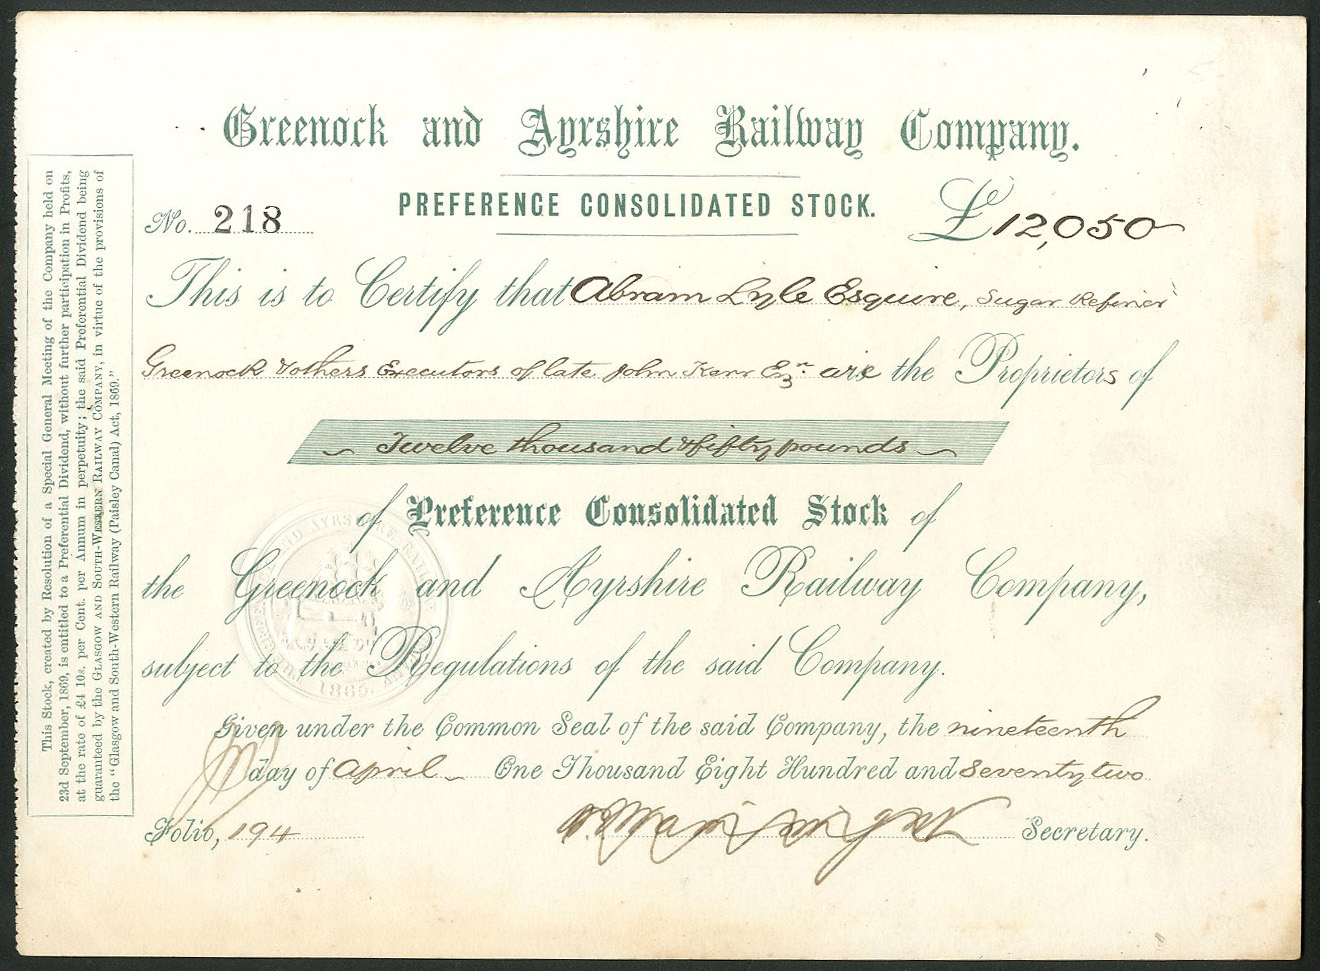 Greenock and Ayrshire Railway Company.
PREFERENCE CONSOLIDATED STOCK.
No. 218
£12,050
This is to Certify that Abram Lyle Esquire, Sugar Refiner
Greenock & others Executors of late John Kerr Esqr. are the Proprietors of
Twelve thousand & fifty pounds
of Preference Consolidated Stock of
the Greenock and Ayrshire Railway Company,
subject to the Regulations of the said Company.
Given under the Common Seal of the said Company, the nineteenth
day of April One Thousand Eight Hundred and Seventy two
Folio, 194
Secretary.
This Stock, created by Resolution of a Special General Meeting of the Company held on
23d September, 1869, is entitled to a Preferential Dividend, without further participation in Profits,
at the rate of £4 10s. per Cent. per Annum in perpetuity; the said Preferential Dividend being
guaranteed by the GLASGOW AND SOUTH-WESTERN RAILWAY COMPANY, in virtue of the provisions of
the "Glasgow and South-Western Railway (Paisley Canal) Act, 1869."
1865